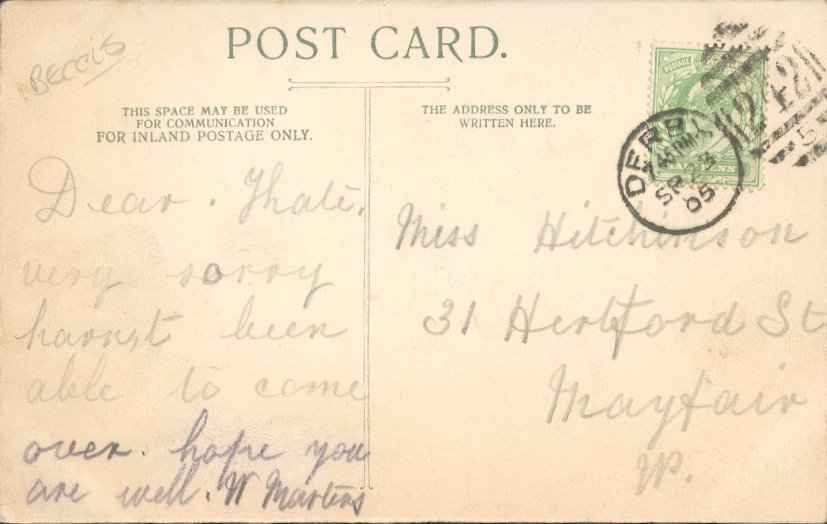 BECCLES
POST CARD.
THIS SPACE MAY BE USED
FOR COMMUNICATION
FOR INLAND POSTAGE ONLY.
THE ADDRESS ONLY TO BE
WRITTEN HERE.
POSTAGE
242
5
DERBY
SP 23
05
Dear. Thate.
very sorry
havn,t been
able to come
over. hope you
are well. W Martens
Miss Hitchinson
31 Hertford St
Mayfair
W.